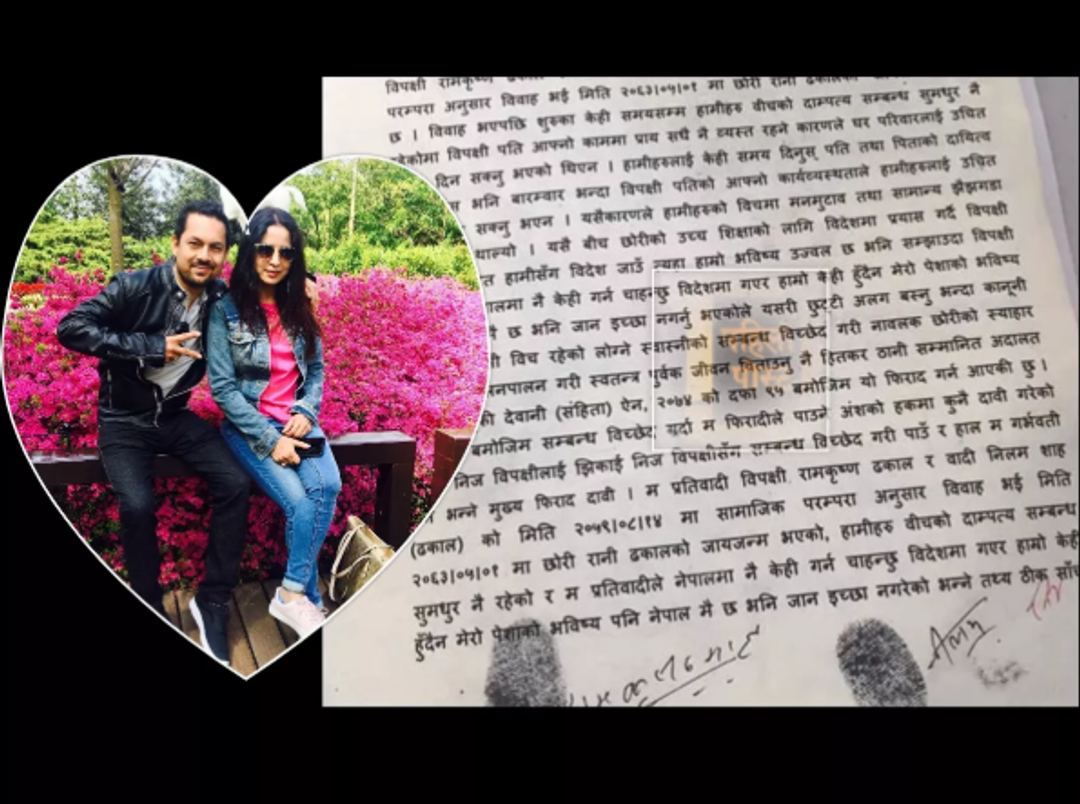 विपक्षी रामकृष्ण
परम्परा अनुसार विवाह भई मिति २०६३।०५।०१ मा छोरी रानी ढकालको
छ । विवाह भएपछि शुरुका केही समयसम्म हामीहरु वीचको दाम्पत्य सम्बन्ध सुमधुर नै
विपक्षी पति आफ्नो काममा प्राय सधै नै व्यस्त रहने कारणले घर परिवारलाई उचित
दिन सक्नु भएको थिएन । हामीहरुलाई केही समय दिनुस् पति तथा पिताको दायित्व
भनि बारम्वार भन्दा विपक्षी पतिको आफ्नो कार्यव्यस्थताले हामीहरुलाई उचित
सक्नु भएन । यसैकारणले हामीहरुको विचमा मनमुटाव तथा सामान्य झैझगडा
थाल्यो । यसै बीच छोरीको उच्च शिक्षाको लागि विदेशमा प्रयास गर्दै विपक्षी
हामीसँग विदेश जाउँ त्यहा हाम्रो भविष्य उज्वल छ भनि सम्झाउदा विपक्षी
नै केही गर्न चाहन्छु विदेशमा गएर हाम्रो केही हुँदैन मेरो पेशाको भविष्य
छ भनि जान इच्छा नगर्नु भएकोले यसरी छुट्टी अलग बस्नु भन्दा कानूनी
विच रहेको लोग्ने स्वास्नीको सम्बन्ध विच्छेद गरी नावलक छोरीको स्याहार
गरी स्वतन्त्र पुर्वक जीवन विताउनु नै हितकर ठानी सम्मानित अदालत
देवानी (संहिता) ऐन, २०७४ को दफा ९५ बमोजिम यो फिराद गर्न आएकी छु ।
बमोजिम सम्बन्ध विच्छेद गर्दा म फिरादीले पाउने अंशको हकमा कुनै दावी गरेको
निज विपक्षीलाई झिकाई निज विपक्षीसँग सम्बन्ध विच्छेद गरी पाउँ र हाल म गर्भवती
भन्ने मुख्य फिराद दावी । म प्रतिवादी विपक्षी रामकृष्ण ढकाल र वादी निलम शाह
(ढकाल) को मिति २०५९।०८।१४ मा सामाजिक परम्परा अनुसार विवाह भई मिति
२०६३।०५।०१ मा छोरी रानी ढकालको जायजन्म भएको, हामीहरु वीचको दाम्पत्य सम्बन्ध
सुमधुर नै रहेको र म प्रतिवादीले नेपालमा नै केही गर्न चाहन्छु विदेशमा गएर हाम्रो केही
हुँदैन मेरो पेशाको भविष्य पनि नेपाल मै छ भनि जान इच्छा नगरेको भन्ने तथ्य ठीक